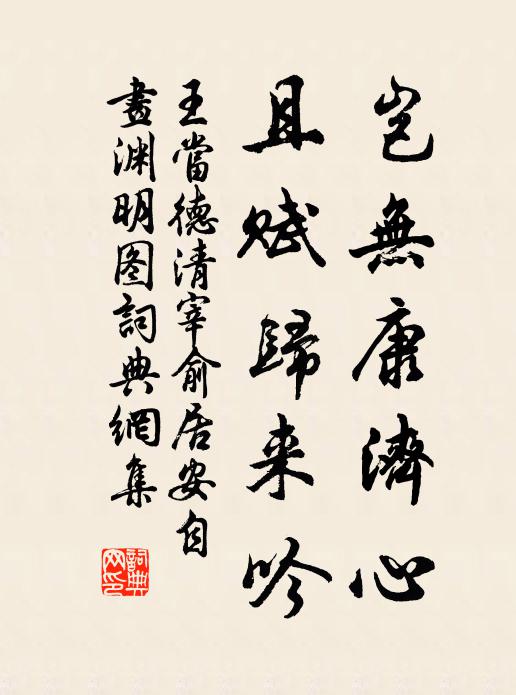 豈無康濟心
且賦歸来吟
王當德清宰俞居安自
畫渊明图詞典網集
詞典網印